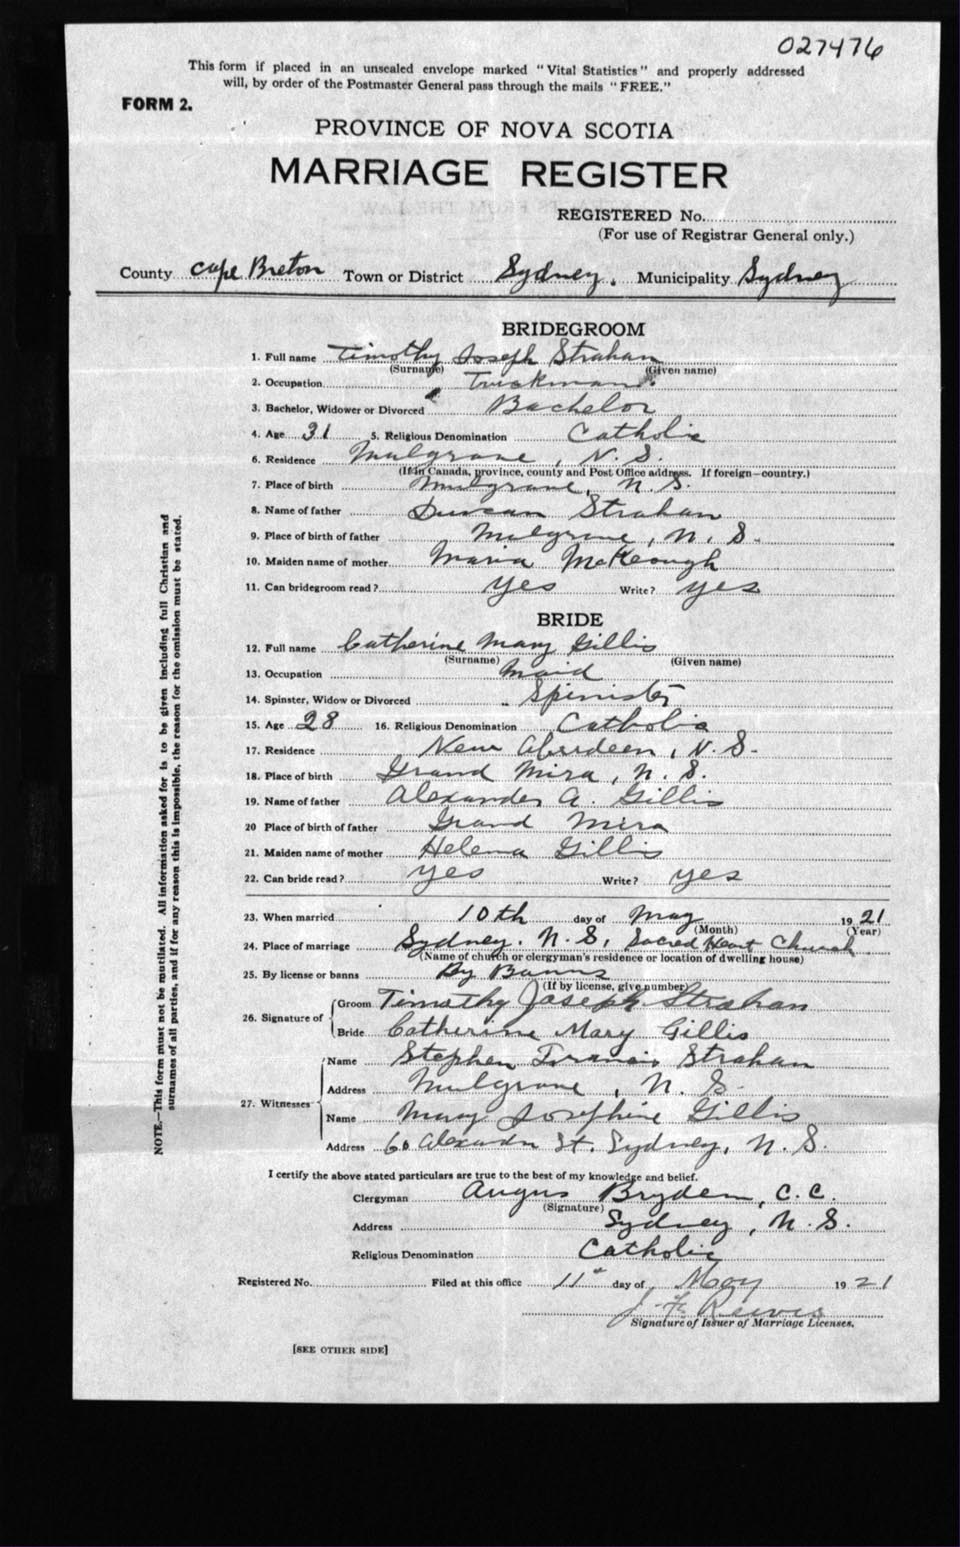 027476
This form if placed in an unsealed envelope marked "Vital Statistics" and properly addressed
will, by order of the Postmaster General pass through the mails "FREE."
FORM 2.
PROVINCE OF NOVA SCOTIA
MARRIAGE REGISTER
REGISTERED No.
(For use of Registrar General only.)
County Cape Breton Town or District Sydney. Municipality Sydney
BRIDEGROOM
1. Full name Timothy Joseph Strahan
(Surname) (Given name)
2. Occupation
3. Bachelor, Widower or Divorced Bachelor
4. Age 31 5. Religious Denomination Catholic
6. Residence Mulgrave, N.S.
(If in Canada, province, county and Post Office address. If foreign—country.)
7. Place of birth Mulgrave, N.S.
8. Name of father Duncan Strahan
9. Place of birth of father Mulgrave, N.S.
10. Maiden name of mother Maria McKeough
11. Can bridegroom read? Yes Write? Yes
BRIDE
12. Full name Catherine Mary Gillis
(Surname) (Given name)
13. Occupation Maid
14. Spinster, Widow or Divorced Spinister
15. Age 28 16. Religious Denomination Catholic
17. Residence New Aberdeen, N.S.
18. Place of birth Grand Mira, N.S.
19. Name of father Alexander A. Gillis
20 Place of birth of father Grand Mira
21. Maiden name of mother Helena Gillis
22. Can bride read? Yes Write? Yes
23. When married 10th day of May 1921
(Month) (Year)
24. Place of marriage Sydney. N.S, Sacred Heart Church
(Name of church or clergyman's residence or location of dwelling house)
25. By license or banns By Banns
(If by license, give number)
26. Signature of Groom Timothy Joseph Strahan
Bride Catherine Mary Gillis
27. Witnesses Name Stephen Francis Strahan
Address Mulgrave, N.S.
Name Mary Josephine Gillis
Address 60 Alexander St. Sydney, N.S.
I certify the above stated particulars are true to the best of my knowledge and belief.
Clergyman Angus Bryden, C.C.
(Signature)
Address Sydney, N.S.
Religious Denomination Catholic
Registered No. Filed at this office 11th day of May 1921
Reeves
Signature of Issuer of Marriage Licenses.
[SEE OTHER SIDE]
NOTE.—This form must not be mutilated. All information asked for is to be given including full Christian and
surnames of all parties, and if for any reason this is impossible, the reason for the omission must be stated.